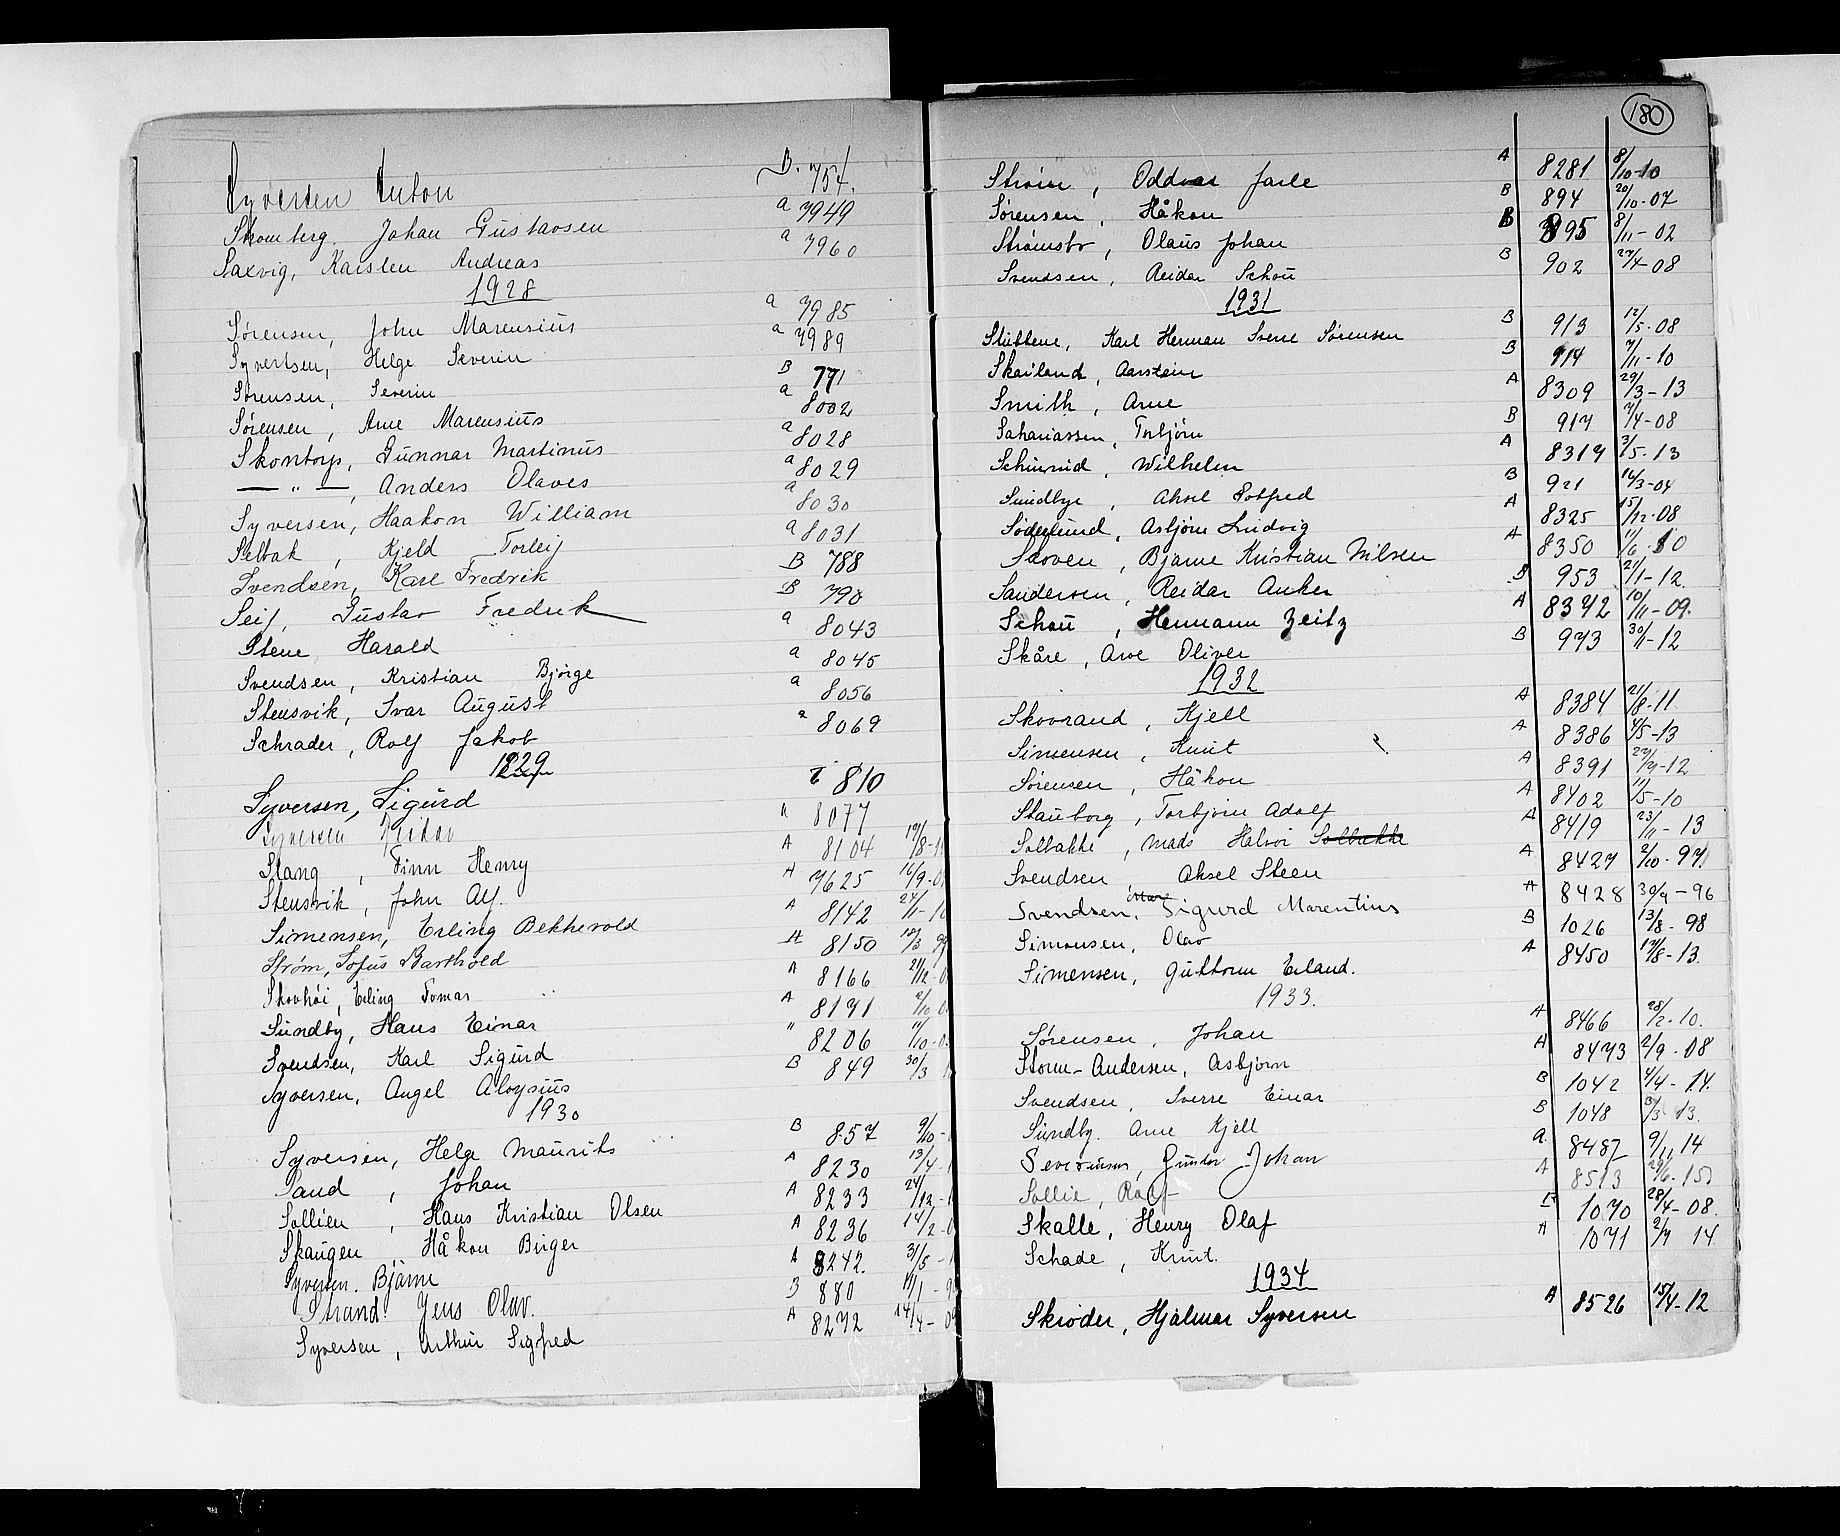 Syversen Anton B. 754.
Skomberg, Johan Gustavsen a 7949
Saxvig, Karsten Andreas a 7960
1928
Sørensen, John Marensius a 7985
Syvertsen, Helge Severin a 7989
Sørensen, Severin B 771
Sørensen, Arne Marensius a 8002
Skontorp, Gunnar Martinus a 8028
— " —, Anders Olaves a 8029
Syversen, Haakon William a 8030
Selbak, Kjeld Torleif a 8031
Svendsen, Karl Fredrik B 788
Seif, Gustav Fredrik B 790
Stene Harald a 8043
Svendsen, Kristian Bjørge a 8045
Stensvik, Ivar August a 8056
Schrader, Rolf Jakob a 8069
1929
Syversen, Sigurd 810
Syversen Reidar " 8077
Stang, Finn Henry A 8104 19/8-1
Stensvik, John Alf. A 7625 16/9-0
Simensen, Erling Bekkevold A 8142 24/1-10
Strøm, Sofus Barthold A 8150 18/3 99
Skovhøi, Erling Tomas A 8166 21/12-0
Sundby, Hans Einar A 8191 2/10 0
Svendsen, Karl Sigurd " 8206 11/10-0
Syversen, Angel Aloysius B 849 30/3 1
1930
Syversen, Helge Maurits B 857 9/10-
Sand, Johan A 8230 13/4-1
Sollien, Hans Kristian Olsen A 8233 24/12-1
Skaugen, Håkon Birger A 8236 14/2-0
Syversen. Bjarne A 8242. 31/5-1
Strand. Jens Olav. B 880 11/1-9
Syversen, Arthur Sigfred A 8272 14/4-0
180
Strøm, Oddvar Jarle A 8281 8/10-10
Sørensen, Håkon B 894 20/10-07
Strømsbr, Olaus Johan B 895 8/11-02
Svendsen, Reidar Schou B 902 27/4-08
1931
Stubbene, Karl Herman Sverre Sørensen B 913 12/5-08
Skailand, Aarstein B 914 7/11-10
Smith, Arne A 8309 29/3-13
Sahariassen, Torbjørn B 917 7/4-08
Schinrud, Wilhelm A 8317 3/5-13
Sundbye, Aksel Gotfred B 921 16/3-04
Søderlund, Asbjørn Ludvig A 8325 15/12-08
Skoven, Bjarne Kristian Nilsen A 8350 11/6-10
Sandersen, Reidar Anker B 953 21/1-12.
Schou, Hermann Zeitz A 8372 10/11-09.
Skåre, Arve Oliver B 973 30/11-12
1932
Skovrand, Kjell A 8384 21/8-11
Simensen, Knut A 8386 4/5-13
Sørensen, Håkon A 8391 27/9-12
Stauborg, Torbjørn Adolf A 8402 11/5-10
Solbakke, Mads Halvor Solbakke A 8419 23/11-13
Svendsen Aksel Steen A 8427 2/10-97
Svendsen, Sigurd Marentius A 8428 30/9-96
Simonsen, Olav B 1026 13/8-98
Simensen, Guttorm Erland. A 8450 17/8-13.
1933.
Sørensen, Johan A 8466 28/2-10.
Storm-Andersen, Asbjørn A 8473 2/9-08
Svendsen, Sverre Einar B 1042 4/4-14.
Sundby. Arne Kjell B 1048 3/3 13.
Severinsen, Gunder Johan a. 8487 9/11 14
Sollie, Rolf A 8513 29/6-15
Skalle, Henry Olaf B 1070 28/4-08.
Schade, Knut. A 1071 2/7 14
1934
Skrøder, Hjalmar Syversen A 8526 15/4-12